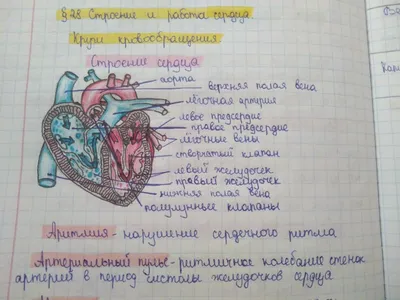 §28 Строение и работа сердца.
Круги кровообращения
Строение сердца
аорта
верхняя полая вена
лёгочная артерия
левое предсердие
правое предсердие
лёгочные вены
створчатый клапан
левый желудочек
правый желудочек
нижняя полая вена
полулунные клапаны
Аритмия - нарушение сердечного ритма
Артериальный пульс - ритмичное колебание стенок
артерий в период систолы желудочков сердца